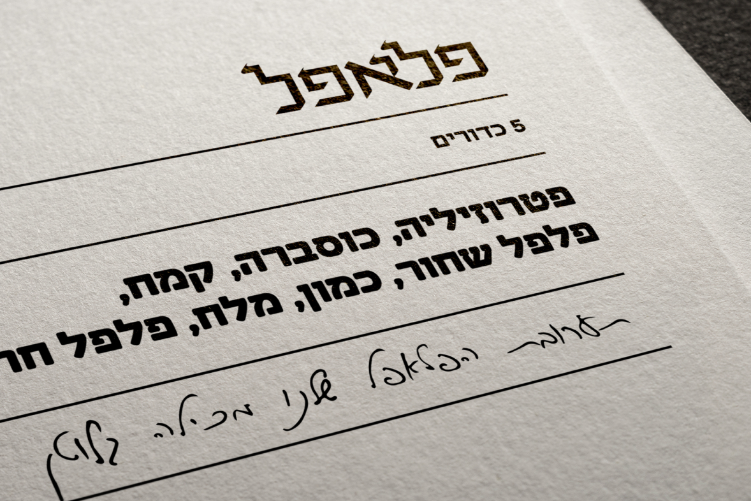 פלאפל
5 כדורים
פטרוזיליה, כוסברה, קמח,
פלפל שחור, כמון, מלח, פלפל חר
תערובת הפלאפל שלנו מכילה גלוטן